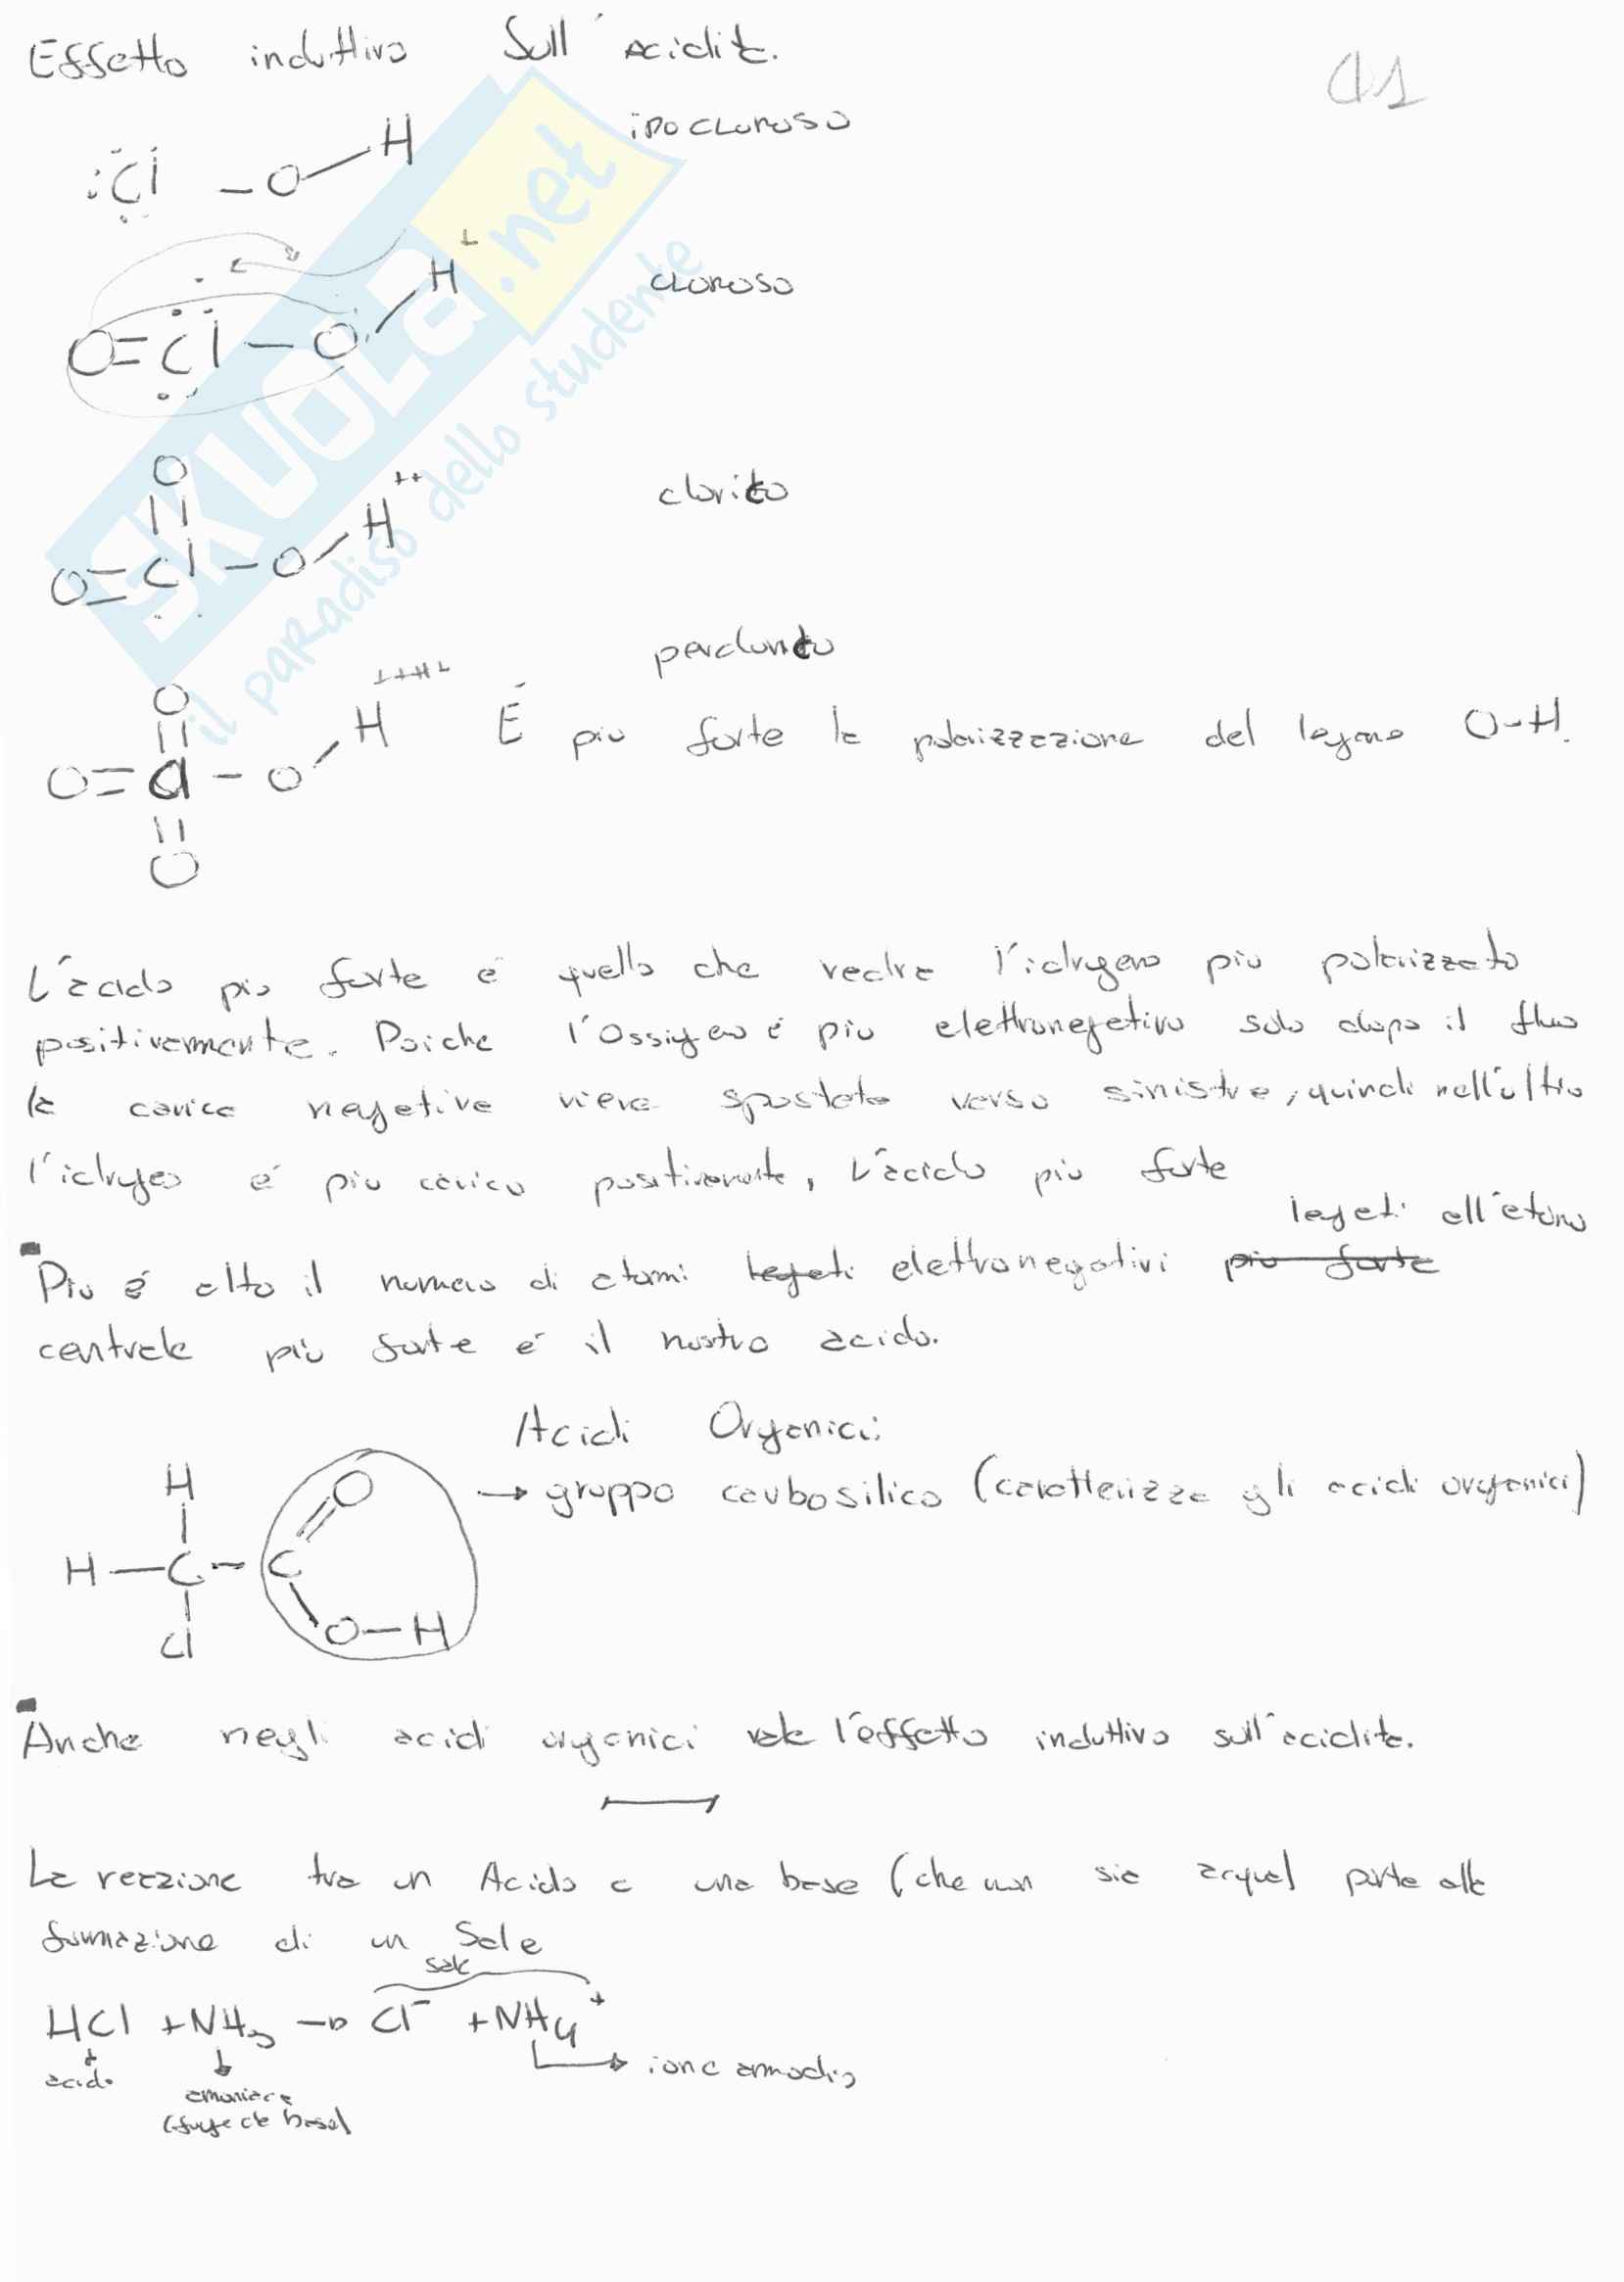 Effetto induttivo Sull'acidità.
91
:Cl - O - H ipocloroso
O=Cl-O-H+ cloroso
O
O=Cl-O-H++ clorico
O
O=Cl-O-H perclorico
O
É più forte la polarizzazione del legame O-H.
L'acido più forte é quello che vedra l'idrogeno più polarizzato
positivamente. Poiche l'Ossigeno é più elettronegativo solo dopo il fluo
la carica negativa viene spostata verso sinistra, quindi nell'ultio
l'idrogeo é più carico positivamente, L'acido più forte
Più é alto il numero di atomi legati elettronegativi più forte legati all'atomo
centrale più forte é il nostro acido.
Acidi Organici:
→ gruppo carbosilico (caratterizza gli acidi organici)
H
H-C-C
O
O-H
Cl
Anche negli acidi organici vale l'effetto induttivo sull'acidità.
La reazione tra un Acido e una base (che non sia acqua) porta alla
formazione di un Sale
sale
HCl + NH3 → Cl- + NH4+
acido
ammoniaca
(funge da base)
ione ammodio
SKUOLa.net
il paradiso dello studente